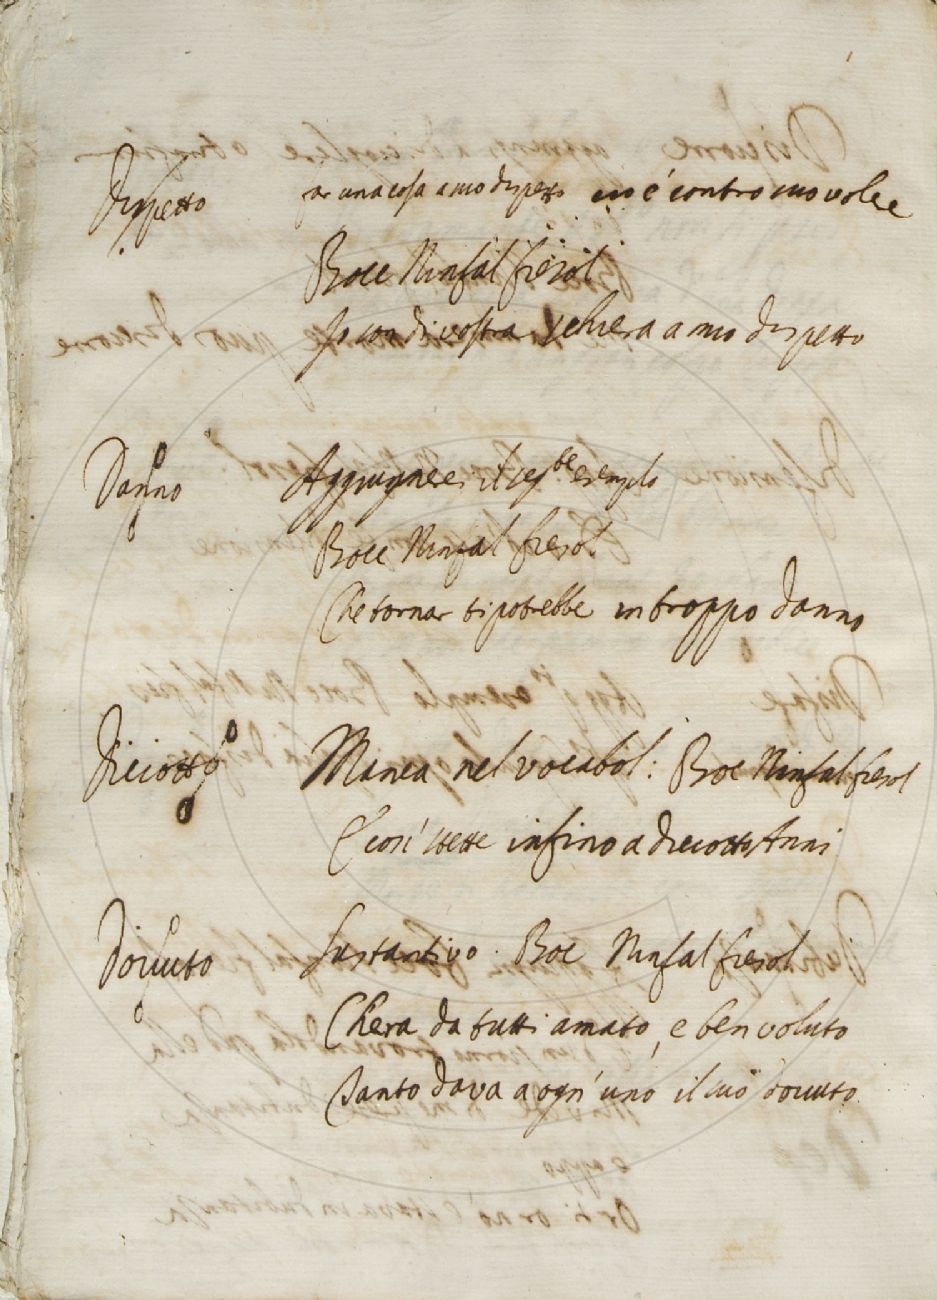 Dispetto far una cosa a mio dispetto cio è contro mio volere
Bocc Ninfal fiesol
Io son di vostra schiera a mio dispetto
Danno Aggiugnere il seg.te esemplo
Bocc Ninfal fiesol
Che tornar ti potrebbe in troppo danno
Diciotto Manca nel vocabol: Boc Ninfal fiesol
E così stette infino a diciotto Anni
Dovuto Sustantivo. Boc Ninfal fiesol
Ch'era da tutti amato, e ben voluto
Tanto dava a ogn'uno il suo dovuto